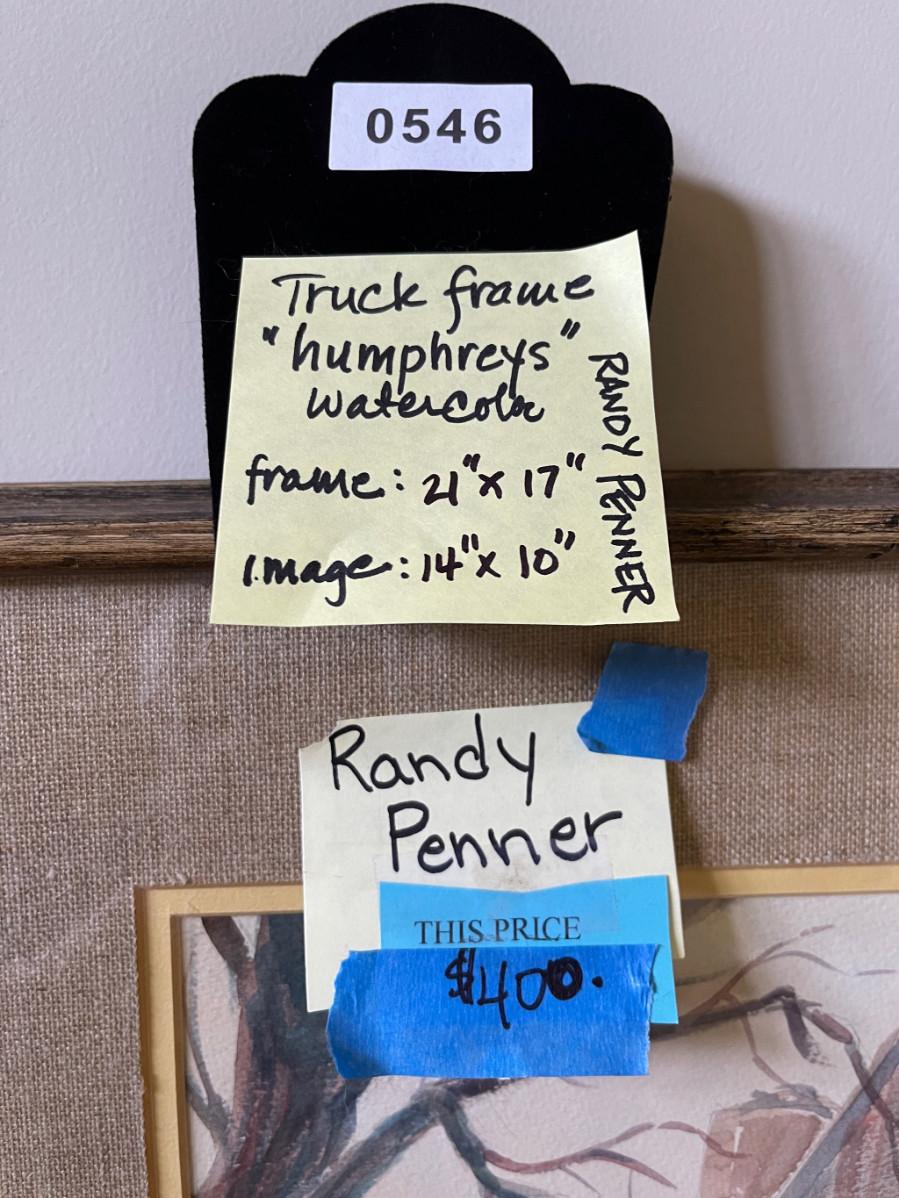 0546
Truck frame
"humphreys"
watercolor
frame: 21" x 17"
image: 14" x 10"
RANDY PENNER
Randy
Penner
THIS PRICE
$400.